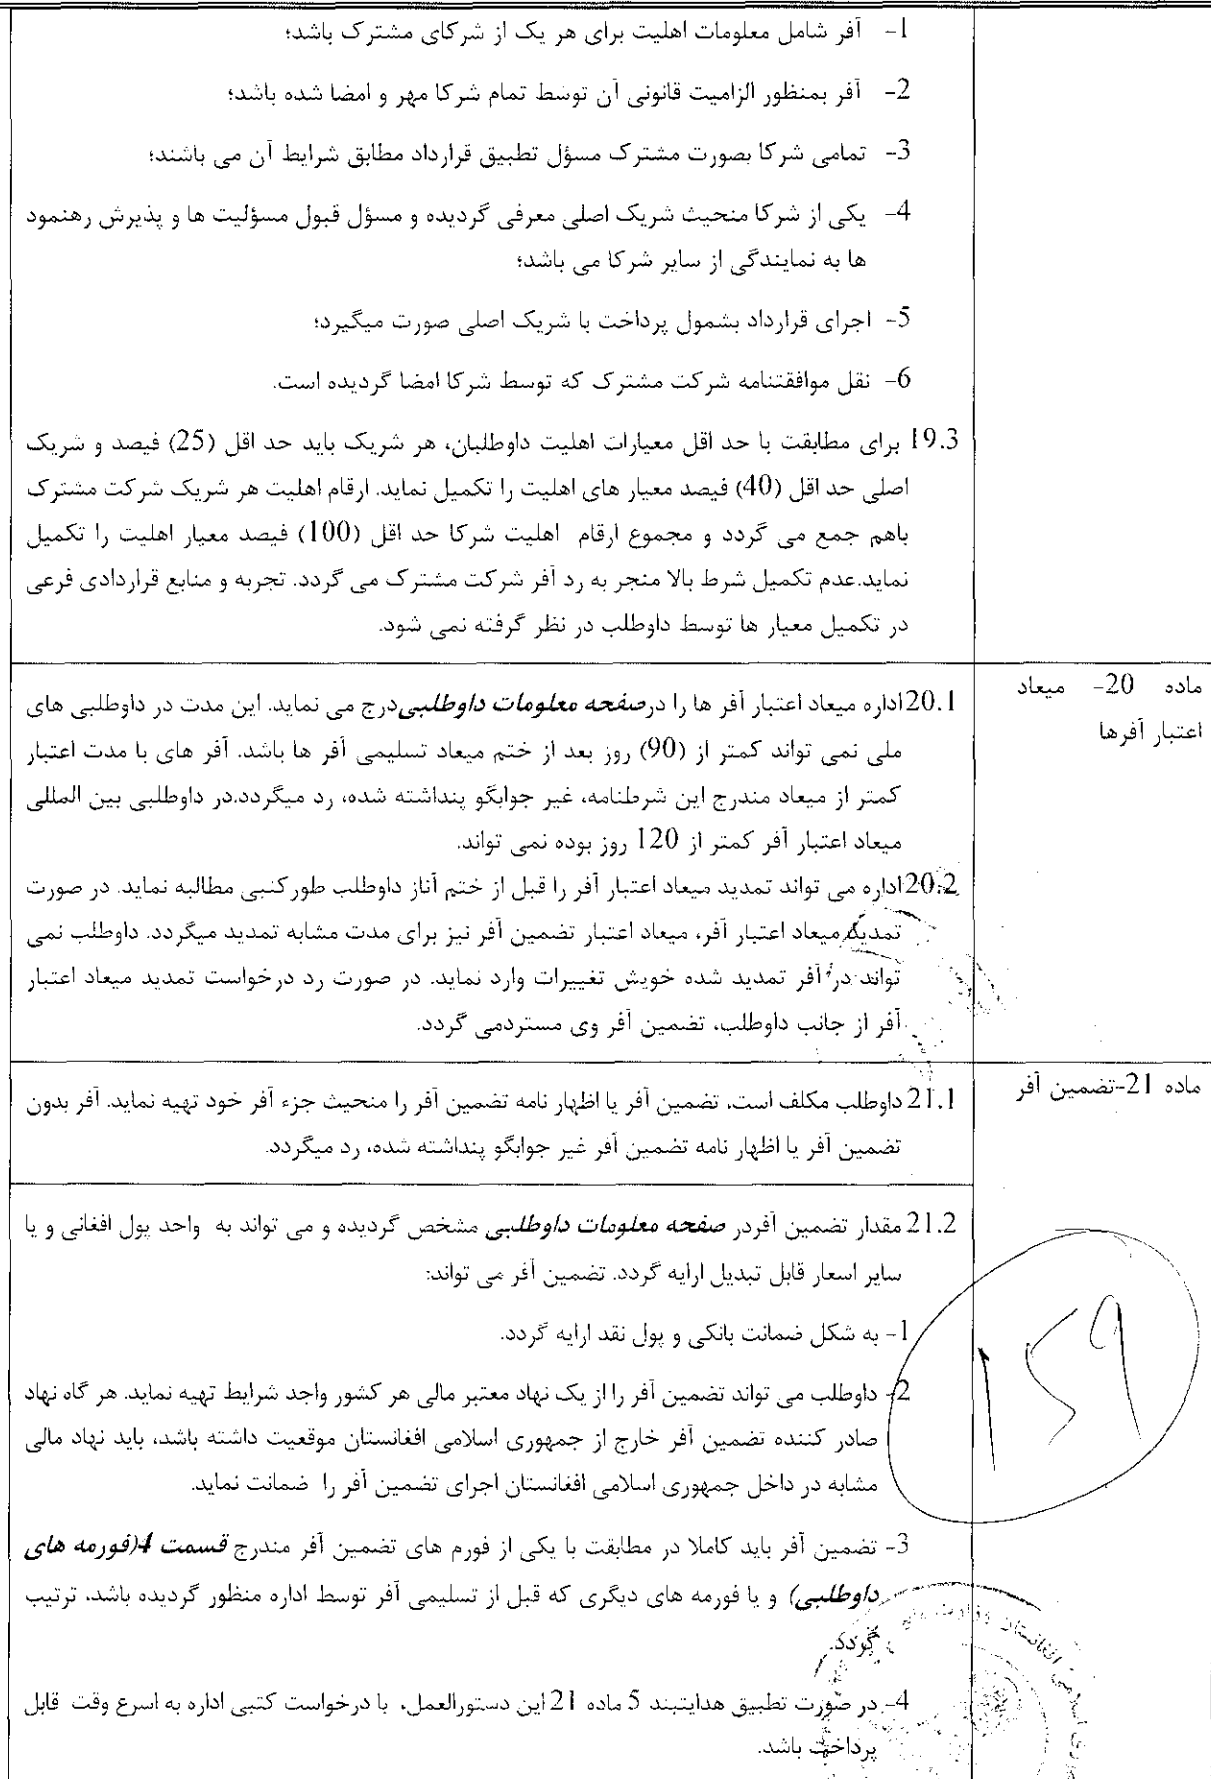 1- آفر شامل معلومات اهلیت برای هر یک از شرکای مشترک باشد؛
2- آفر بمنظور الزامیت قانونی آن توسط تمام شرکا مهر و امضا شده باشد؛
3- تمامی شرکا بصورت مشترک مسؤل تطبیق قرارداد مطابق شرایط آن می باشند؛
4- یکی از شرکا منحیث شریک اصلی معرفی گردیده و مسؤل قبول مسؤلیت ها و پذیرش رهنمود
ها به نمایندگی از سایر شرکا می باشد؛
5- اجرای قرارداد بشمول پرداخت با شریک اصلی صورت میگیرد؛
6- نقل موافقتنامه شرکت مشترک که توسط شرکا امضا گردیده است.
19.3 برای مطابقت با حد اقل معیارات اهلیت داوطلبان، هر شریک باید حد اقل (25) فیصد و شریک
اصلی حد اقل (40) فیصد معیار های اهلیت را تکمیل نماید. ارقام اهلیت هر شریک شرکت مشترک
باهم جمع می گردد و مجموع ارقام اهلیت شرکا حد اقل (100) فیصد معیار اهلیت را تکمیل
نماید.عدم تکمیل شرط بالا منجر به رد آفر شرکت مشترک می گردد. تجربه و منابع قراردادی فرعی
در تکمیل معیار ها توسط داوطلب در نظر گرفته نمی شود.
ماده 20- میعاد
اعتبار آفرها
20.1اداره میعاد اعتبار آفر ها را درصفحه معلومات داوطلبیدرج می نماید. این مدت در داوطلبی های
ملی نمی تواند کمتر از (90) روز بعد از ختم میعاد تسلیمی آفر ها باشد. آفر های با مدت اعتبار
کمتر از میعاد مندرج این شرطنامه، غیر جوابگو پنداشته شده، رد میگردد.در داوطلبی بین المللی
میعاد اعتبار آفر کمتر از 120 روز بوده نمی تواند.
20.2اداره می تواند تمدید میعاد اعتبار آفر را قبل از ختم آناز داوطلب طورکتبی مطالبه نماید. در صورت
تمدید میعاد اعتبار آفر، میعاد اعتبار تضمین آفر نیز برای مدت مشابه تمدید میگردد. داوطلب نمی
تواند در آفر تمدید شده خویش تغییرات وارد نماید. در صورت رد درخواست تمدید میعاد اعتبار
آفر از جانب داوطلب، تضمین آفر وی مستردمی گردد.
ماده 21-تضمین آفر
21.1داوطلب مکلف است، تضمین آفر یا اظهار نامه تضمین آفر را منحیث جزء آفر خود تهیه نماید. آفر بدون
تضمین آفر یا اظهار نامه تضمین آفر غیر جوابگو پنداشته شده، رد میگردد.
21.2 مقدار تضمین آفردر صفحه معلومات داوطلبی مشخص گردیده و می تواند به واحد پول افغانی و یا
سایر اسعار قابل تبدیل ارایه گردد. تضمین آفر می تواند:
1- به شکل ضمانت بانکی و پول نقد ارایه گردد.
2- داوطلب می تواند تضمین آفر را از یک نهاد معتبر مالی هر کشور واجد شرایط تهیه نماید. هر گاه نهاد
صادر کننده تضمین آفر خارج از جمهوری اسلامی افغانستان موقعیت داشته باشد، باید نهاد مالی
مشابه در داخل جمهوری اسلامی افغانستان اجرای تضمین آفر را ضمانت نماید.
3- تضمین آفر باید کاملا در مطابقت با یکی از فورم های تضمین آفر مندرج قسمت 4(فورمه های
داوطلبی) و یا فورمه های دیگری که قبل از تسلیمی آفر توسط اداره منظور گردیده باشد، ترتیب
گردد.
4- در صورت تطبیق هدایتبند 5 ماده 21 این دستورالعمل، با درخواست کتبی اداره به اسرع وقت قابل
پرداخت باشد.